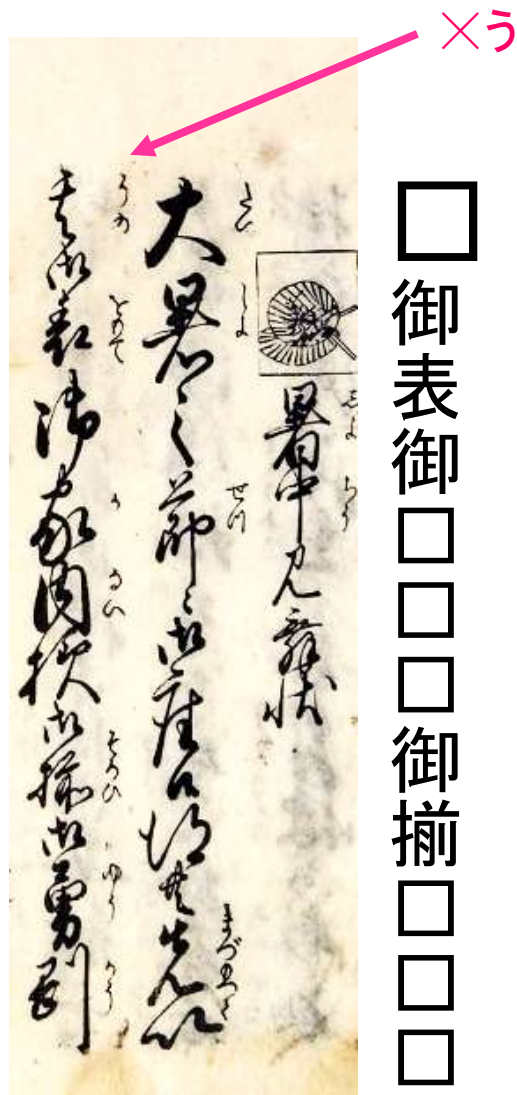 ×う
□御表御□□□御揃□□□
暑中見舞状
大暑之節ニ御座候得共先以
其御表御家内様御揃御勇剛